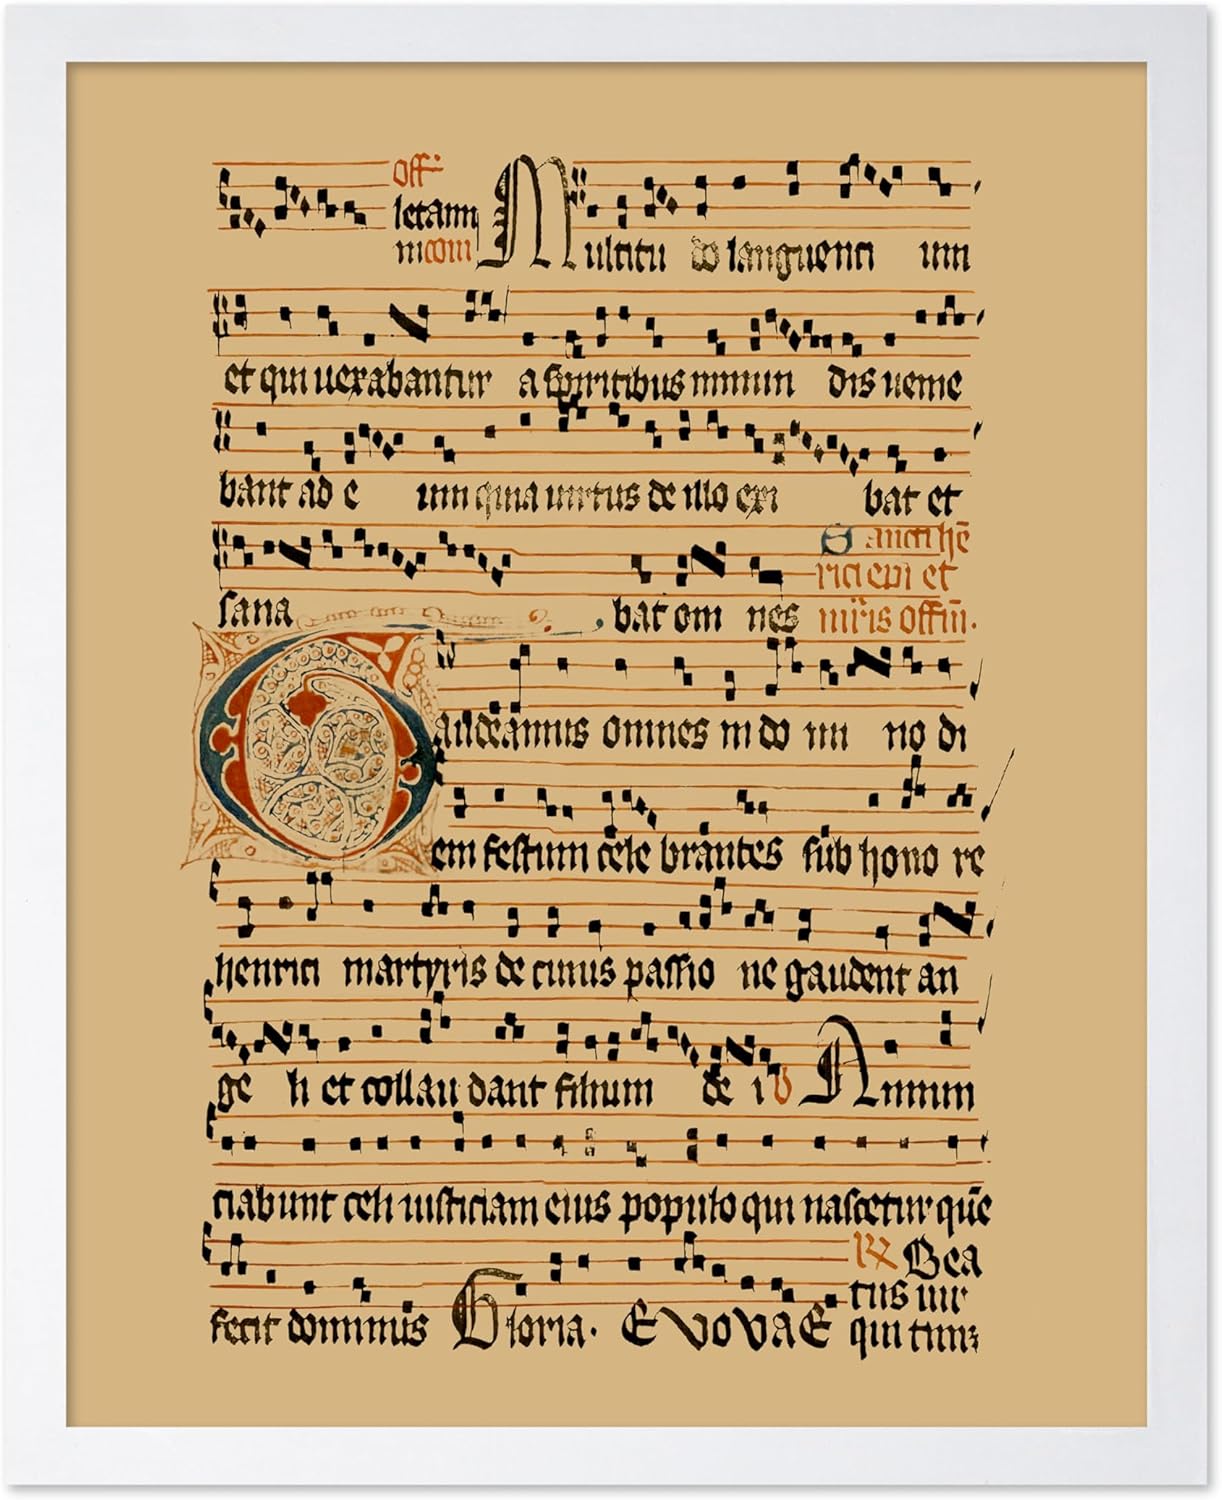 Off.
letami
ni com Multitu do languenti um
et qui uexabantur a spiritibus inmun dis uenie
bant ad e um quia uirtus de illo exi bat et
Sancti hē
rici epi et
sana bat om nes mr̄is offm̄.
Gaudeamus omnes in do mi no di
em festum cele brantes sub hono re
henrici martyris de cuius passio ne gaudent an
ge li et collau dant filium de i V Annun
ciabunt celi iusticiam eius populo qui nascetur quē
R Bea
tus uir
fecit dominus Gloria. EvovaE qui tim;